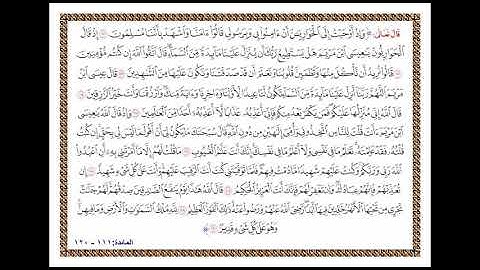 قال تعالى: ﴿ وَإِذْ أَوْحَيْتُ إِلَى ٱلْحَوَارِيِّـۧنَ أَنْ ءَامِنُوا۟ بِى وَبِرَسُولِى قَالُوٓا۟ ءَامَنَّا وَٱشْهَدْ بِأَنَّنَا مُسْلِمُونَ ۝ إِذْ قَالَ
ٱلْحَوَارِيُّونَ يَـٰعِيسَى ٱبْنَ مَرْيَمَ هَلْ يَسْتَطِيعُ رَبُّكَ أَن يُنَزِّلَ عَلَيْنَا مَآئِدَةً مِّنَ ٱلسَّمَآءِ قَالَ ٱتَّقُوا۟ ٱللَّهَ إِن كُنتُم مُّؤْمِنِينَ
۝ قَالُوا۟ نُرِيدُ أَن نَّأْكُلَ مِنْهَا وَتَطْمَئِنَّ قُلُوبُنَا وَنَعْلَمَ أَن قَدْ صَدَقْتَنَا وَنَكُونَ عَلَيْهَا مِنَ ٱلشَّـٰهِدِينَ ۝ قَالَ عِيسَى
ٱبْنُ مَرْيَمَ ٱللَّهُمَّ رَبَّنَآ أَنزِلْ عَلَيْنَا مَآئِدَةً مِّنَ ٱلسَّمَآءِ تَكُونُ لَنَا عِيدًا لِّأَوَّلِنَا وَءَاخِرِنَا وَءَايَةً مِّنكَ وَٱرْزُقْنَا وَأَنتَ خَيْرُ ٱلرَّٰزِقِينَ ۝
قَالَ ٱللَّهُ إِنِّى مُنَزِّلُهَا عَلَيْكُمْ فَمَن يَكْفُرْ بَعْدُ مِنكُمْ فَإِنِّىٓ أُعَذِّبُهُۥ عَذَابًا لَّآ أُعَذِّبُهُۥٓ أَحَدًا مِّنَ ٱلْعَـٰلَمِينَ ۝ وَإِذْ قَالَ ٱللَّهُ يَـٰعِيسَى
ٱبْنَ مَرْيَمَ ءَأَنتَ قُلْتَ لِلنَّاسِ ٱتَّخِذُونِى وَأُمِّىَ إِلَـٰهَيْنِ مِن دُونِ ٱللَّهِ قَالَ سُبْحَـٰنَكَ مَا يَكُونُ لِىٓ أَنْ أَقُولَ مَا لَيْسَ لِى بِحَقٍّ إِن كُنتُ
قُلْتُهُۥ فَقَدْ عَلِمْتَهُۥ تَعْلَمُ مَا فِى نَفْسِى وَلَآ أَعْلَمُ مَا فِى نَفْسِكَ إِنَّكَ أَنتَ عَلَّـٰمُ ٱلْغُيُوبِ ۝ مَا قُلْتُ لَهُمْ إِلَّا مَآ أَمَرْتَنِى بِهِۦٓ أَنِ ٱعْبُدُوا۟
ٱللَّهَ رَبِّى وَرَبَّكُمْ وَكُنتُ عَلَيْهِمْ شَهِيدًا مَّا دُمْتُ فِيهِمْ فَلَمَّا تَوَفَّيْتَنِى كُنتَ أَنتَ ٱلرَّقِيبَ عَلَيْهِمْ وَأَنتَ عَلَىٰ كُلِّ شَىْءٍ شَهِيدٌ ۝ إِن
تُعَذِّبْهُمْ فَإِنَّهُمْ عِبَادُكَ وَإِن تَغْفِرْ لَهُمْ فَإِنَّكَ أَنتَ ٱلْعَزِيزُ ٱلْحَكِيمُ ۝ قَالَ ٱللَّهُ هَـٰذَا يَوْمُ يَنفَعُ ٱلصَّـٰدِقِينَ صِدْقُهُمْ لَهُمْ جَنَّـٰتٌ
تَجْرِى مِن تَحْتِهَا ٱلْأَنْهَـٰرُ خَـٰلِدِينَ فِيهَآ أَبَدًا رَّضِىَ ٱللَّهُ عَنْهُمْ وَرَضُوا۟ عَنْهُ ذَٰلِكَ ٱلْفَوْزُ ٱلْعَظِيمُ ۝ لِلَّهِ مُلْكُ ٱلسَّمَـٰوَٰتِ وَٱلْأَرْضِ وَمَا فِيهِنَّ
وَهُوَ عَلَىٰ كُلِّ شَىْءٍ قَدِيرٌۢ ۝ ﴾
المائدة: ١١١ - ١٢٠